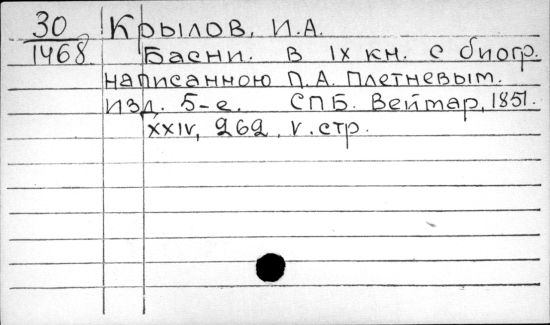 30 Крылов, И.А.
1468 Басни. В IX кн. с биогр.
написанною П.А. Плетневым.
изд. 5-е. СПБ. Веймар, 1851.
XXIV, 262, V. стр.